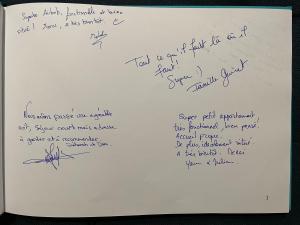 Super Airbnb, fonctionnelle et bien
situé ! Merci, à très bientôt.
Tout ce qu'il faut là où il
faut !
Super :)
Famille
Nous avons passé une agréable
nuit, séjour court mais adresse
à garder et à recommander
Super petit appartement
très fonctionnel, bien pensé,
Accueil propre.
De plus, idéalement situé
A très bientôt. Merci
Yann & Julien